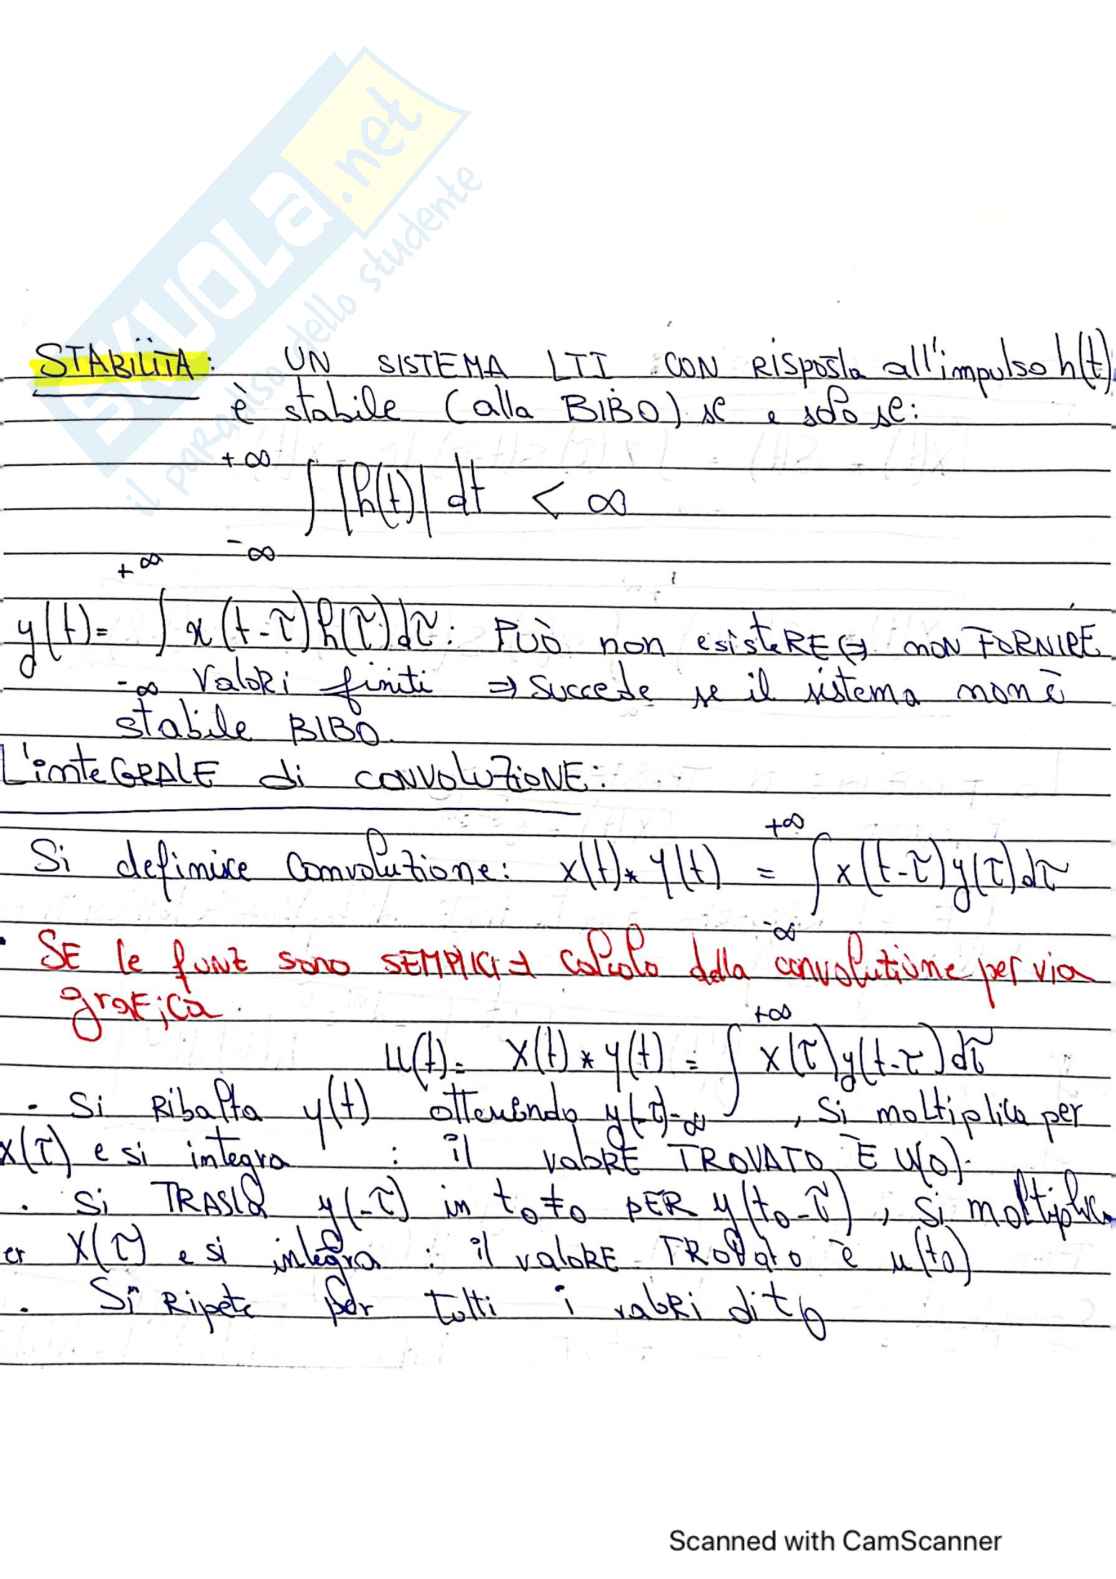 SKUOLA.net
il paradiso dello studente
STABILITÀ: UN SISTEMA LTI CON RISPOSTA all'impulso h(t)
è stabile (alla BIBO) se e solo se:
+∞
∫ |h(t)| dt < ∞
-∞
+∞
y(t)= ∫ x(t-τ)h(τ)dτ: PUÒ non esisteRE ⇔ non FORNIRE
-∞ valoRi finiti ⇒ Succede se il sistema non è
stabile BIBO.
L'inteGRALE di CONVOLUZIONE:
+∞
Si definisce Convoluzione: x(t)* y(t) = ∫ x(t-τ)y(τ)dτ
-∞
• SE le funz sono SEMPLICI ⇒ calcolo della convoluzione per via
grafica.
+∞
u(t)= x(t) * y(t) = ∫ x(τ)y(t-τ)dτ
-∞
• Si Ribalta y(t) ottenendo y(-τ), Si moltiplica per
x(τ) e si integra : il valoRE TROVATO È u(0).
• Si TRASLA y(-τ) in t0≠0 PER y(t0-τ), Si moltiplica
er x(τ) e si integra : il valoRE TROVato è u(t0)
• Si Ripete per tutti i valoRi di t0
Scanned with CamScanner